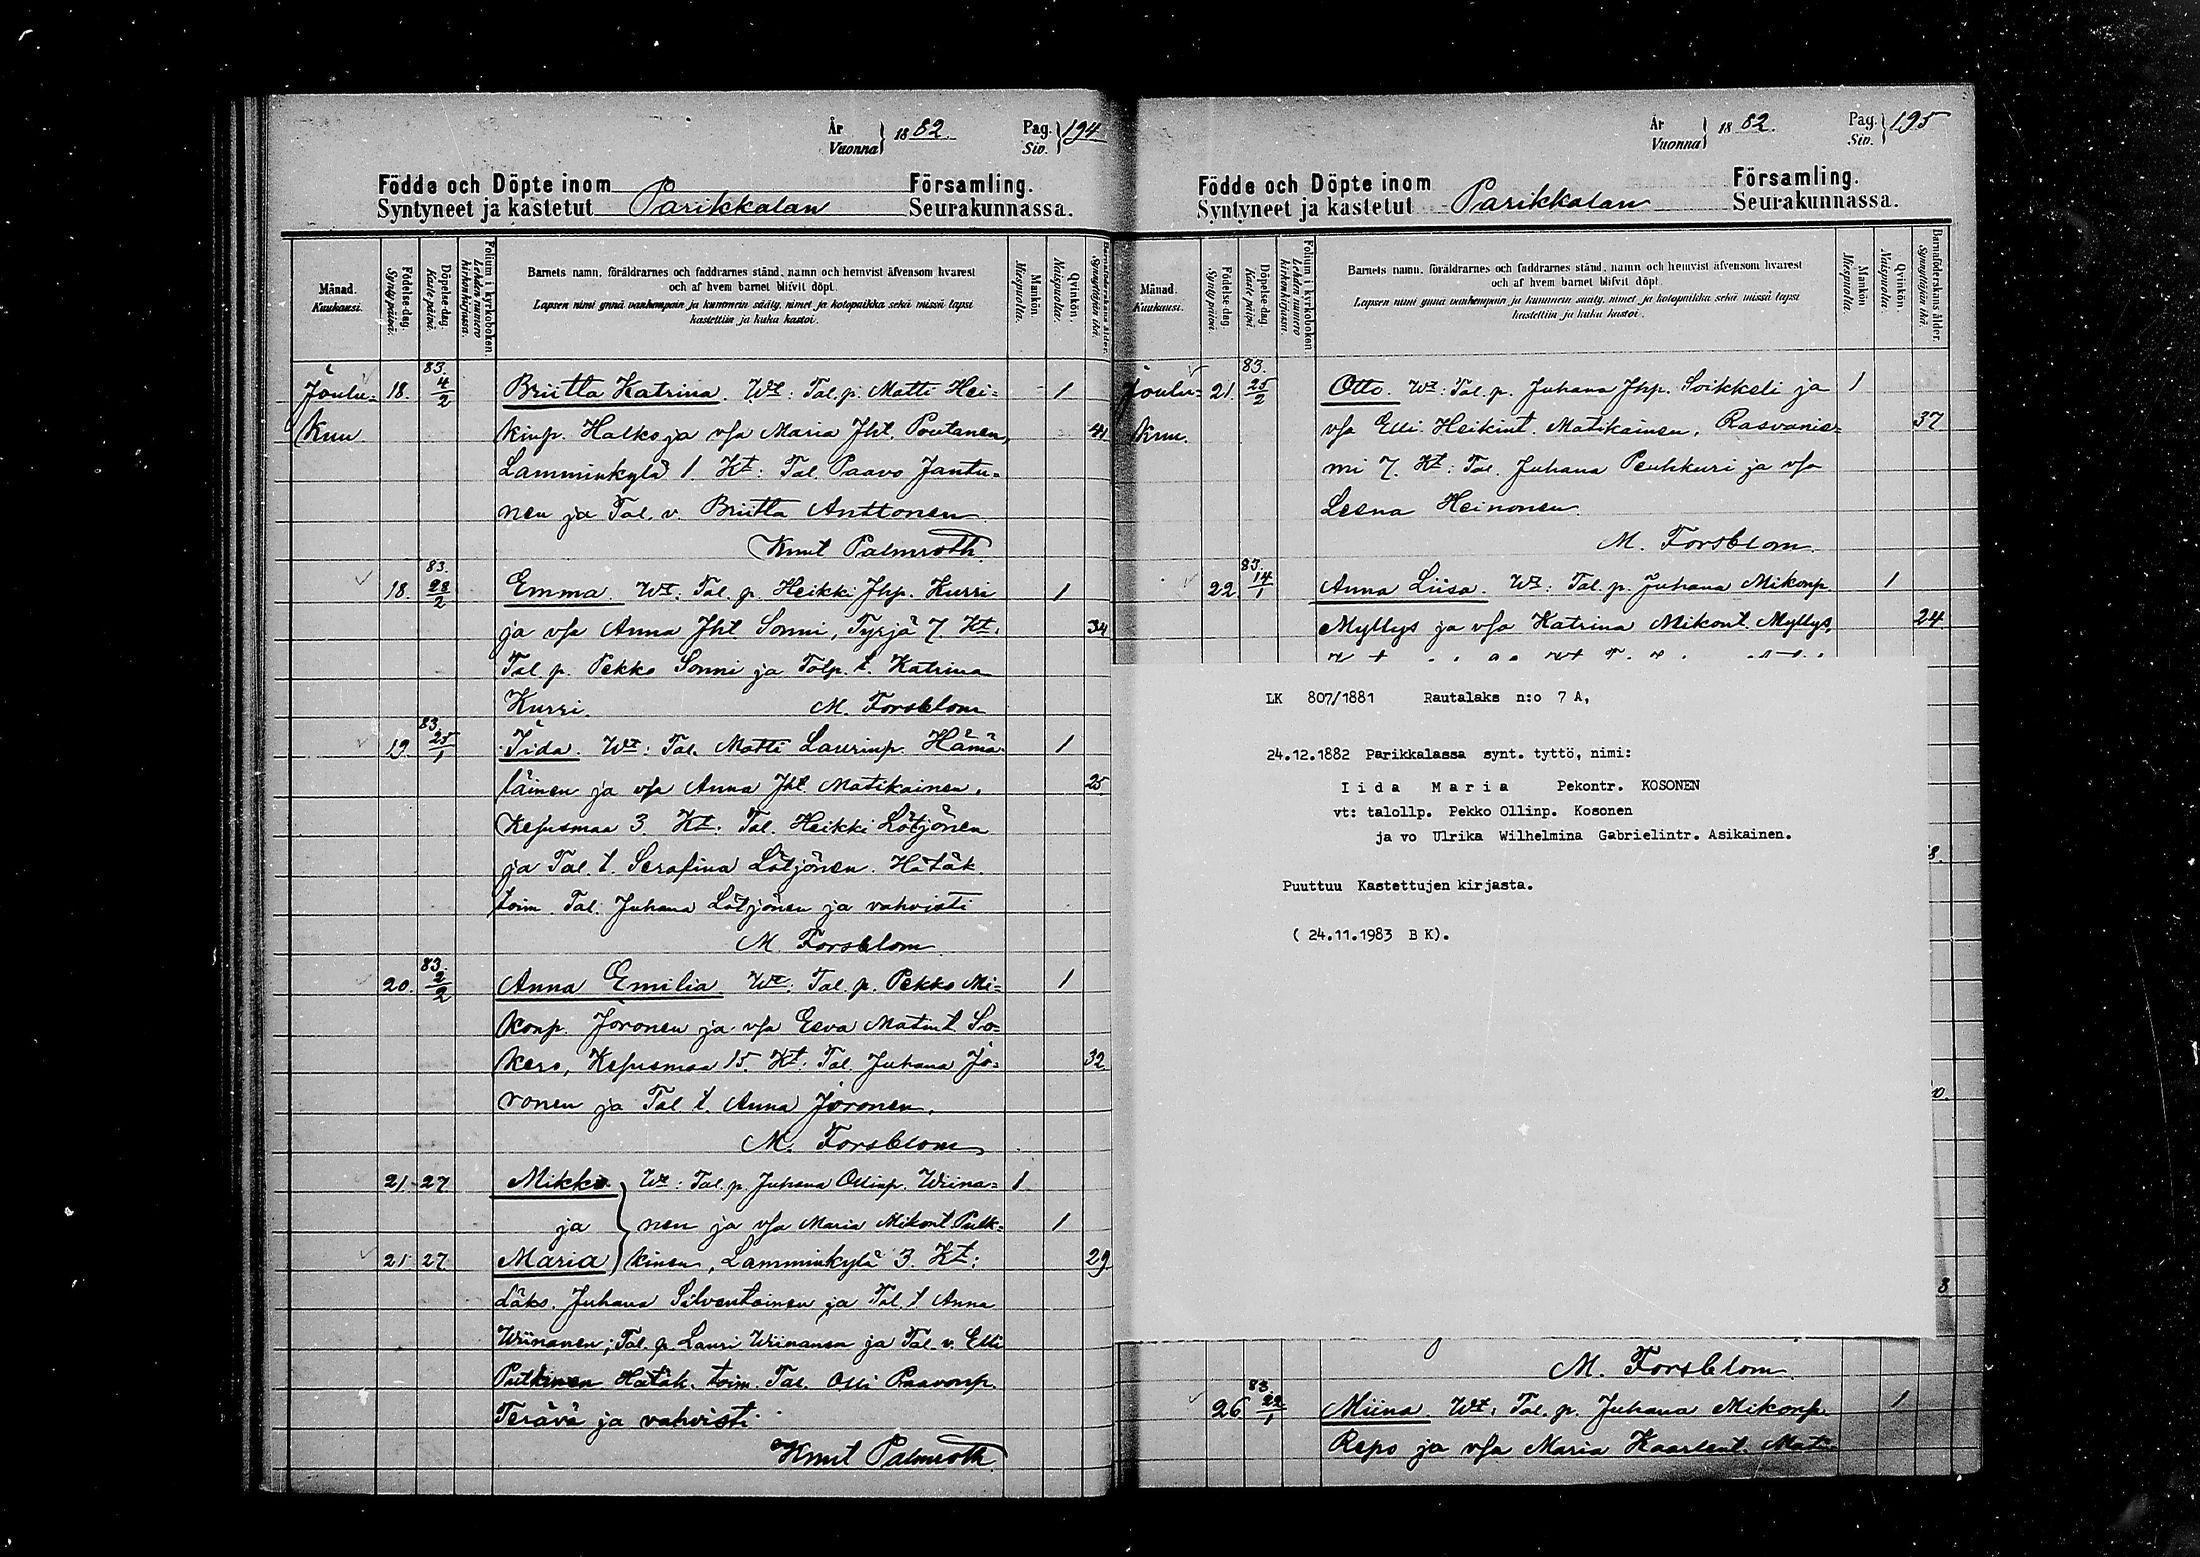 År
Vuonna } 18 82.
Pag.
Siv. } 194
Födde och Döpte inom Församling.
Syntyneet ja kastetut Parikkalan Seurakunnassa.
Månad.
Kuukausi.
Födelse-dag.
Syntypäivä.
Döpelse-dag.
Kaste päivä.
Folium i kyrkoboken.
Lehden numero kirkonkirjassa.
Barnets namn, föräldrarnes och faddrarnes stånd, namn och hemvist äfvensom hvarest
och af hvem barnet blifvit döpt.
Lapsen nimi ynnä vanhempain ja kummein sääty, nimet ja kotopaikka sekä missä lapsi
kastettiin ja kuka kastoi.
Mankön.
Miespuolia.
Qvinkön.
Naispuolia.
Barnaföderskans ålder.
Synnyttäjän ikä.
Joulu- 18. 83. 4/2 Briitta Katrina. Wt: Tal. p. Matti Hei- 1
Kuu kinp. Halko ja vsa Maria Jht. Poutanen, 41
Lamminkylä 1 Kt: Tal. Paavo Jantu-
nen ja Tal. v. Briitta Anttonen
Knut Palmroth.
18. 83. 28/2 Emma Wt: Tal. p. Heikki Jhp. Kurri 1
ja vsa Anna Jht Sonni, Tyrjä 7. Kt: 34
Tal. p. Pekko Sonni ja Talp. t. Katrina
Kurri. M. Forsblom
19. 83. 25/1 Iida. Wt: Tal. Matti Laurinp. Hämä- 1
läinen ja vsa Anna Jht. Matikainen, 25
Kesusmaa 3. Kt: Tal. Heikki Lötjönen
ja Tal. t. Serafina Lötjönen. Hätäk.
toim. Tal. Juhana Lötjönen ja vahvisti
M. Forsblom
20. 83. 2/2 Anna Emilia. Wt: Tal. p. Pekko Mi- 1
konp. Joronen ja vsa Eeva Matint. So-
kero, Kesusmaa 15. Kt: Tal. Juhana Jo- 32
ronen ja Tal t. Anna Joronen.
M. Forsblom
21. 27 Mikko Wt: Tal. p. Juhana Ollinp. Wiina- 1
ja nen ja vsa Maria Mikont Pulk- 1
21 27 Maria kinen, Lamminkylä 3. Kt: 29
Läks. Juhana Silventoinen ja Tal. t Anna
Wiinanen; Tal. p. Lauri Wiinanen ja Tal. v. Elli
Pulkinen Hätäk. toim. Tal. Olli Paavonp.
Terävä ja vahvisti
Knut Palmroth
År
Vuonna } 18 82.
Pag.
Siv. } 195
Födde och Döpte inom Församling.
Syntyneet ja kastetut Parikkalan Seurakunnassa.
Månad.
Kuukausi.
Födelse-dag.
Syntypäivä.
Döpelse-dag.
Kaste päivä.
Folium i kyrkoboken.
Lehden numero kirkonkirjassa.
Barnets namn, föräldrarnes och faddrarnes stånd, namn och hemvist äfvensom hvarest
och af hvem barnet blifvit döpt.
Lapsen nimi ynnä vanhempain ja kummein sääty, nimet ja kotopaikka sekä missä lapsi
kastettiin ja kuka kastoi.
Mankön.
Miespuolia.
Qvinkön.
Naispuolia.
Barnaföderskans ålder.
Synnyttäjän ikä.
Joulu- 21. 83. 25/2 Otto. Wt: Tal. p. Juhana Jhp. Soikkeli ja 1
Kuu. vsa Elli Heikint. Matikainen, Rasvanie- 37
mi 7. Kt: Tal. Juhana Peuhkuri ja vsa
Leena Heinonen.
M. Forsblom.
22 83. 14/1 Anna Liisa. Wt: Tal. p. Juhana Mikonp 1
Myllys ja vsa Katrina Mikont. Myllys, 24
LK 807/1881 Rautalaks n:o 7 A,
24.12.1882 Parikkalassa synt. tyttö, nimi:
I i d a M a r i a Pekontr. KOSONEN
vt: talollp. Pekko Ollinp. Kosonen
ja vo Ulrika Wilhelmina Gabrielintr. Asikainen.
Puuttuu Kastettujen kirjasta.
( 24.11.1983 B K).
M. Forsblom.
26 83. 22/1 Miina Wt: Tal. p. Juhana Mikonp. 1
Repo ja vsa Maria Kaarlent. Mat-